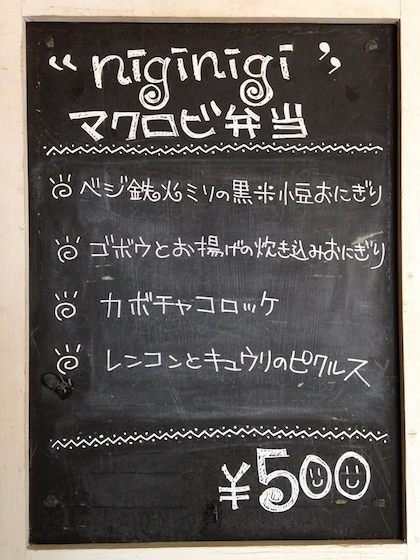 “niginigi”
マクロビ弁当
ベジ鉄火ミソの黒米小豆おにぎり
ゴボウとお揚げの炊き込みおにぎり
カボチャコロッケ
レンコンとキュウリのピクルス
¥500